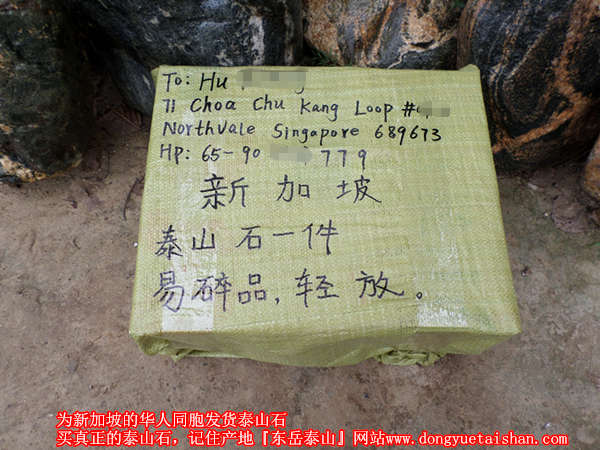 To: Hu
71 Choa Chu Kang Loop #
Northvale Singapore 689673
Hp: 65-90 779
新加坡
泰山石一件
易碎品,轻放。
为新加坡的华人同胞发货泰山石
买真正的泰山石，记住产地『东岳泰山』网站www.dongyuetaishan.com。